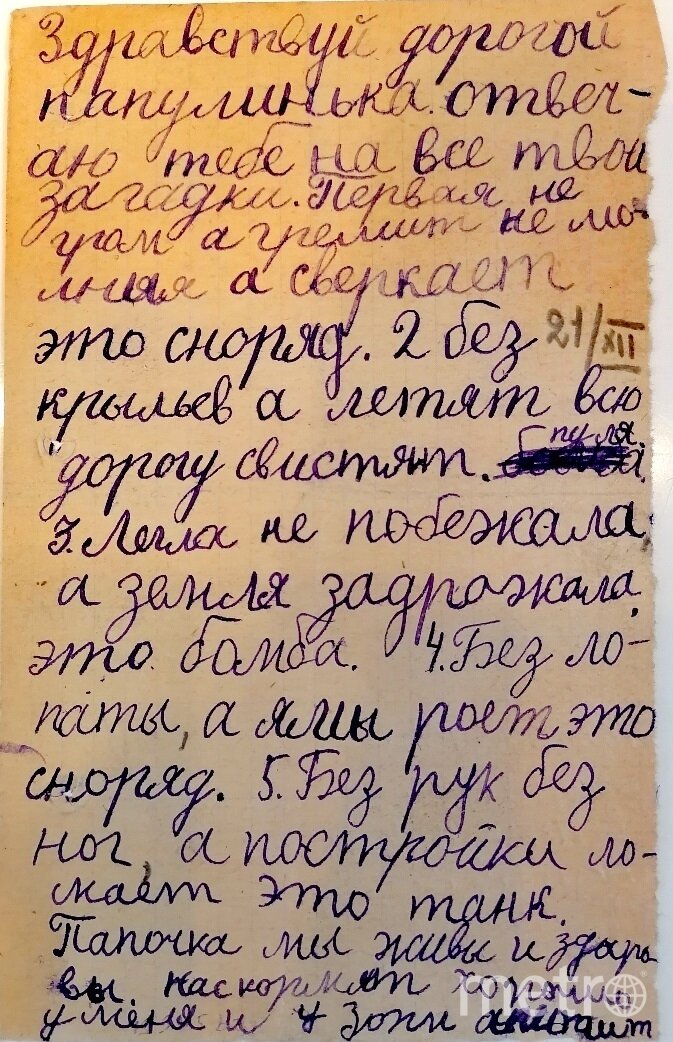 Здравствуй дорогой
папулинька. отвеч-
аю тебе на все твои
загадки. Первая не
гром а гремит не мо-
лния а сверкает
это сноряд. 2 без 21/XII
крыльев а летят всю
дорогу свистят. пуля.
3. Легла не побежала,
а земля задрожала,
это бомба. 4. Без ло-
паты, а ямы роет это
сноряд. 5. Без рук без
ног, а постройки ло-
мает это танк.
Папочка мы живы и здоро-
вы. нас кормят
у меня и у Зои
metro